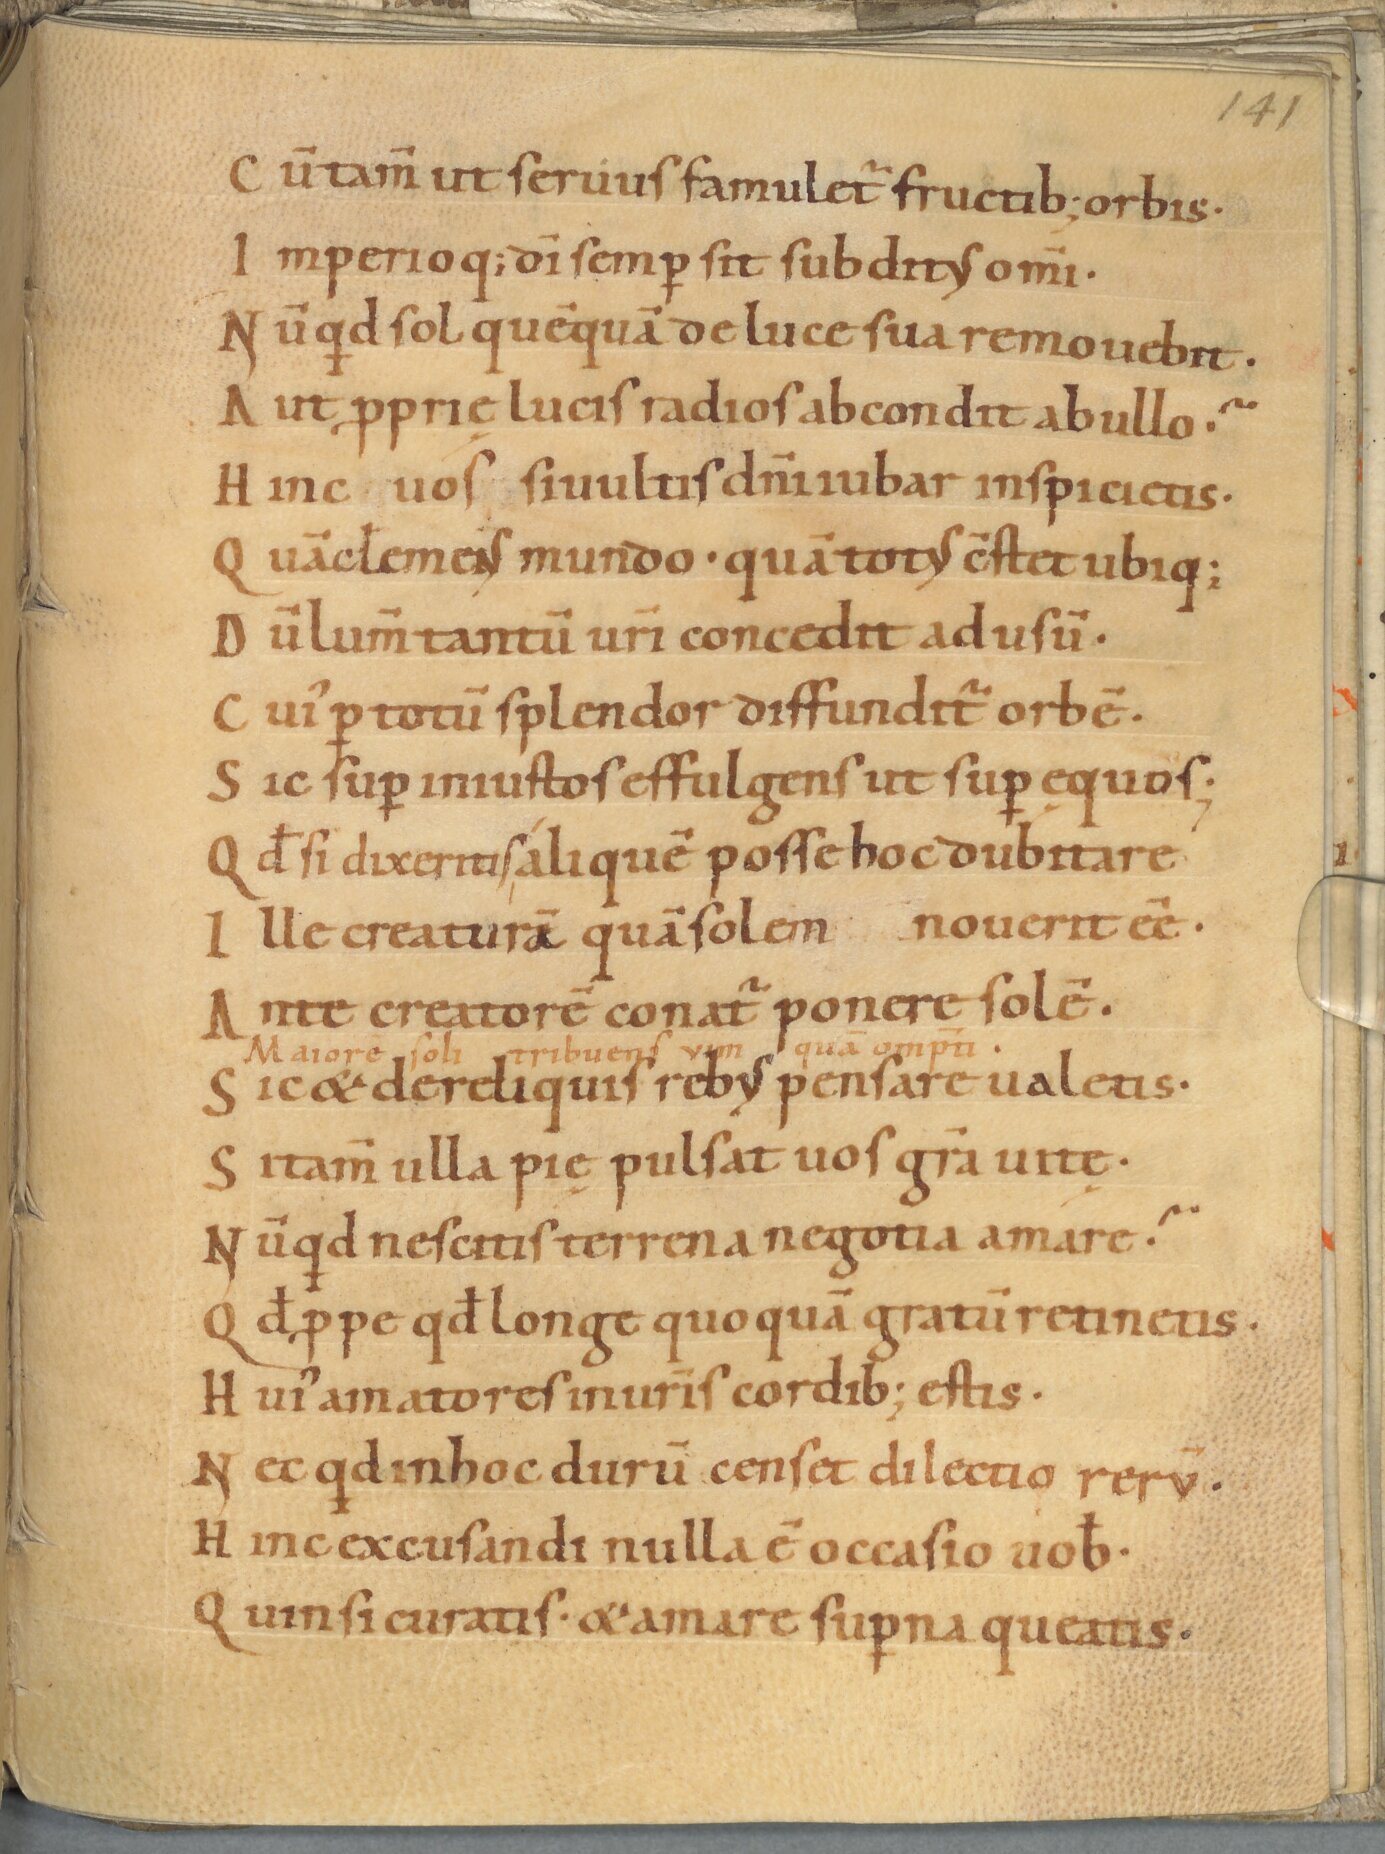 141
Cū tam̄ ut seruus famulet᷑ fructib; orbis·
Imperioq; dī semꝑ sit subditꝰ om̄i·
Nūqd sol quēquā de luce sua remouebit·
Aut ꝓprię lucis radios abcondit ab ullo·~
Hinc uos si uultis dn̄i iubar inspicietis·
Quā clemens mundo· quā totꝰ ēstet ubiq;
Dū lum̄ tantū ur̄i concedit ad usū·
Cui' ꝑ totū splendor diffundit᷑ orbē·
Sic suꝑ iniustos effulgens ut suꝑ ęquos;
Qđ si dixeritis aliquē posse hoc dubitare
Ille creaturā quā solem nouerit eē·
Ante creatorē conat᷑ ponere solē·
Maiorē soli tribuens vim quā omp̄ti·
Sic & de reliquis rebꝰ pensare ualetis·
Si tam̄ ulla pię pulsat uos gr̄a uitę·
Nūqd nescitis terrena negotia amare·~
Qđ ꝓpe qđ longe quoquā gratū retinetis·
Hui' amatores in ur̄is cordib; estis·
Nec qd in hoc durū censet dilectio rerū·
Hinc excusandi nulla ē occasio uob̄·
Quin si curatis· & amare suꝑna queatis·